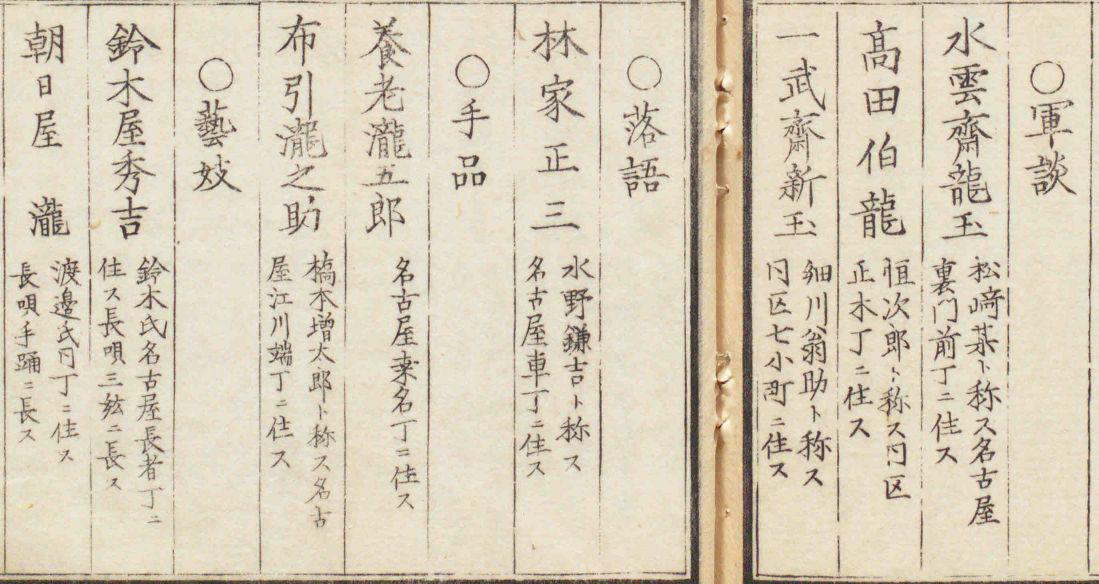 ○軍談
水雲齋龍玉
松﨑某ト称ス名古屋
裏門前丁ニ住ス
髙田伯龍
恒次郎ト称ス同区
正木丁ニ住ス
一武齋新玉
細川翁助ト称ス
同区七小町ニ住ス
○落語
林家正三
水野鎌吉ト称ス
名古屋車丁ニ住ス
○手品
養老瀧五郎
名古屋桑名丁ニ住ス
布引瀧之助
橋本增太郎ト称ス名古
屋江川端丁ニ住ス
○藝妓
鈴木屋秀吉
鈴木氏名古屋長者丁ニ
住ス長唄三絃ニ長ス
朝日屋 瀧
渡邊氏同丁ニ住ス
長唄手踊ニ長ス